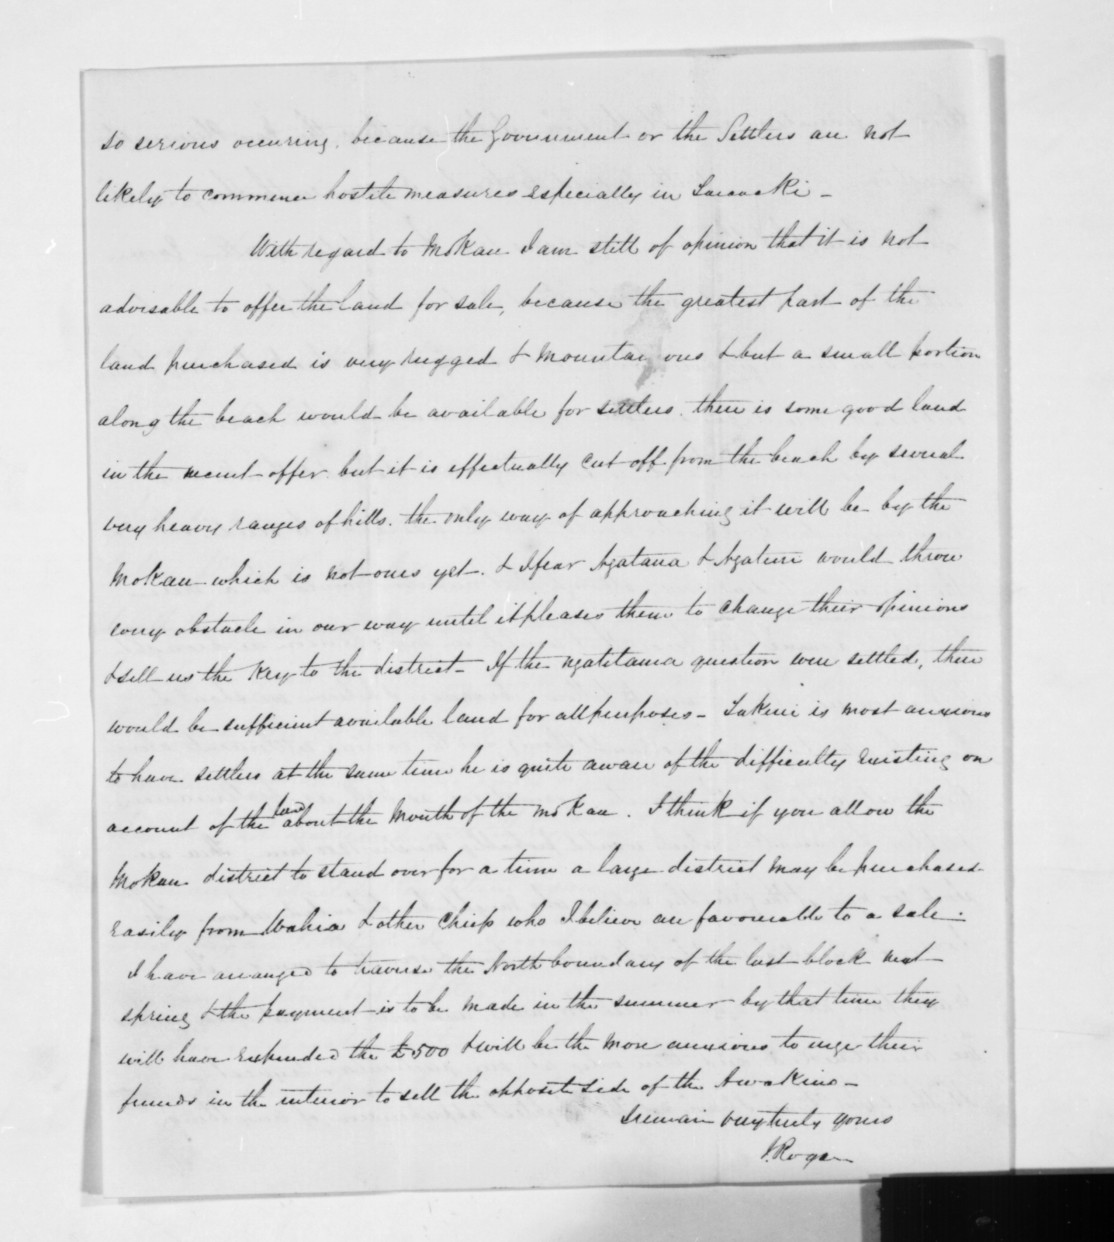 so serious occuring, because the Government or the Settlers are not
likely to commence hostile measures especially in Taranaki -
With regard to Mokau I am still of opinion that it is not
advisable to offer the land for sale, because the greatest part of the
land purchased is very rugged & mountainous & but a small portion
along the beach would be available for settlers, there is some good land
in the recent offer but it is effectually cut off from the beach by several
very heavy ranges of hills. the only way of approaching it will be by the
Mokau which is not ours yet. & I fear Ngatawa & Ngatem would throw
every obstacle in our way until it pleases them to change their opinions
& sell us the Key to the district - If the Ngatitama question were settled, there
would be sufficient available land for all purposes - Takirei is most anxious
to have settlers at the same time he is quite aware of the difficulty existing on
account of the land about the Mouth of the Mokau. I think if you allow the
Mokau district to stand over for a time a large district may be purchased
easily from Wahia & other Chiefs who I believe are favourable to a sale.
I have arranged to traverse the North boundary of the last block next
spring & the payment is to be made in the summer by that time they
will have expended the £500 & will be the more anxious to urge their
friends in the interior to sell the opposite side of the Awakino -
I remain very truly yours
J. Rogan